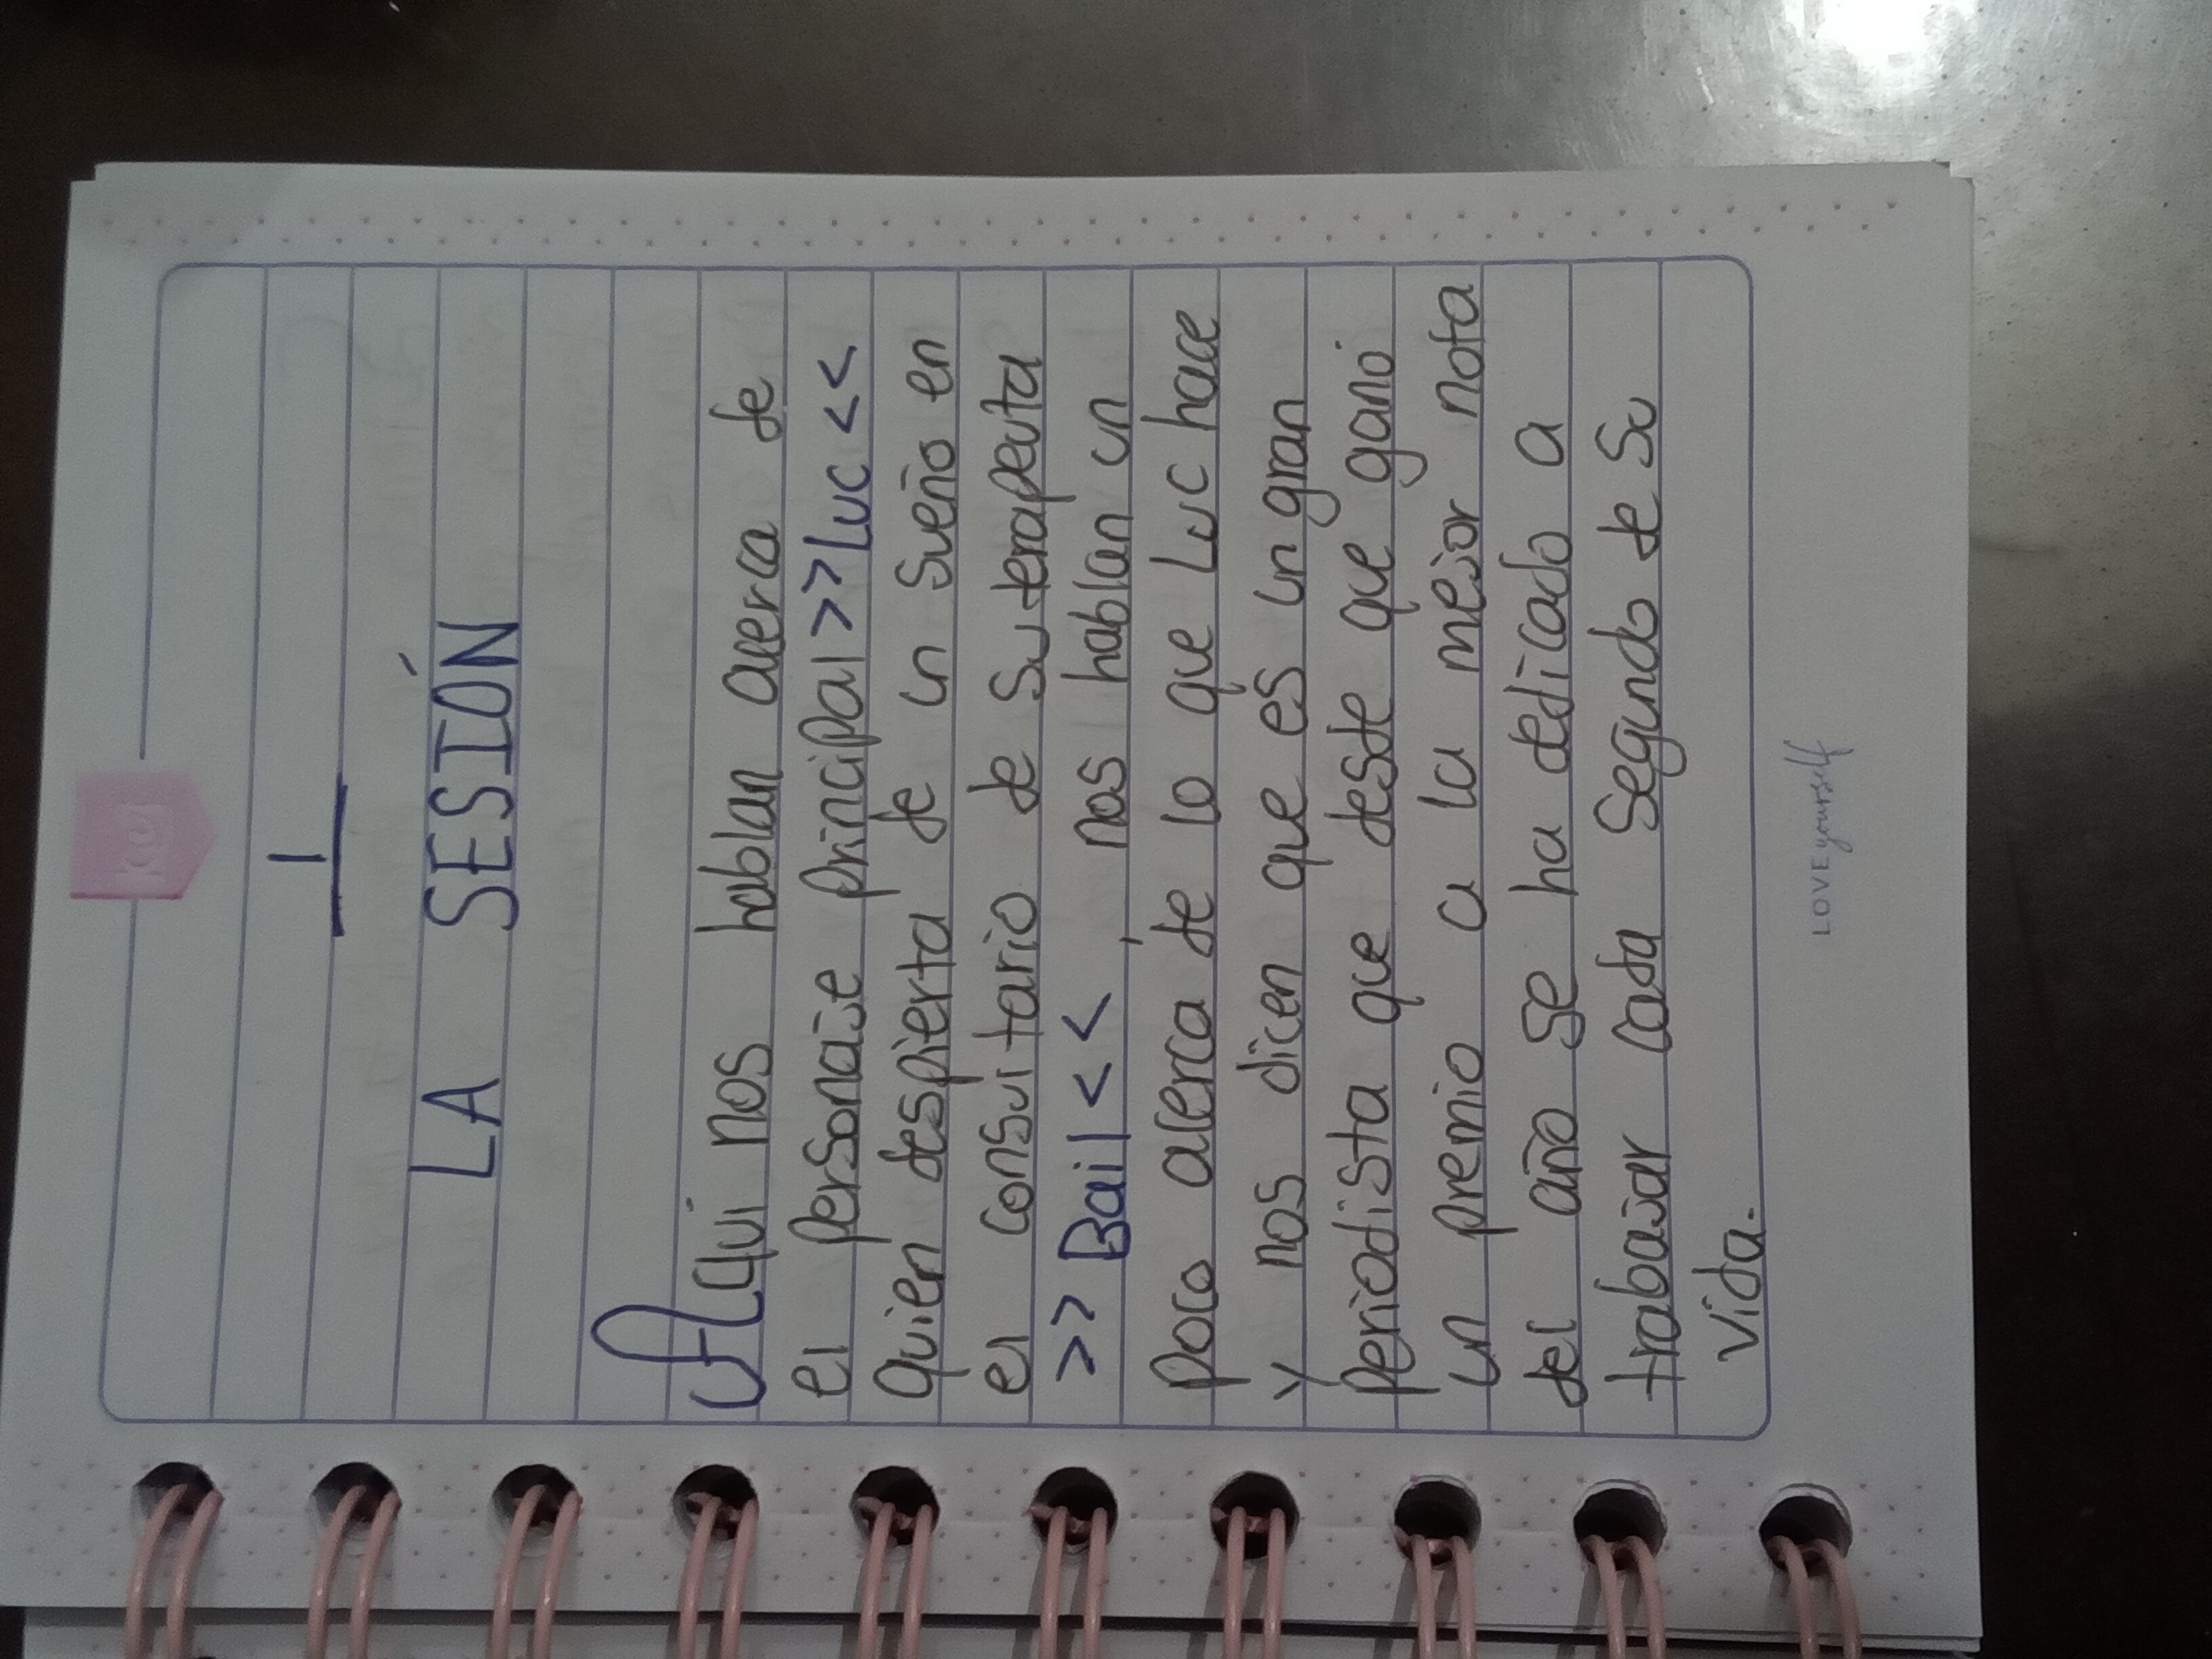 1
LA SESIÓN
Aquí nos hablan acerca de
el personaje principal >>Luc<<
quien despierta de un sueño en
el consultario de su terapeuta
>> Bail<<, nos hablan un
poco acerca de lo que Luc hace
y nos dicen que es un gran
periodista que desde que ganó
un premio a la mejor nota
del año se ha dedicado a
trabajar cada segundo de su
vida.
LOVE yourself